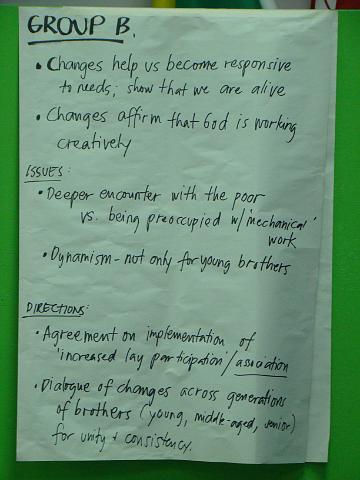 GROUP B.
• Changes help us become responsive
to needs; show that we are alive
• Changes affirm that God is working
creatively
ISSUES:
• Deeper encounter with the poor
vs. being preoccupied w/ 'mechanical'
work
• Dynamism - not only for young brothers
DIRECTIONS:
• Agreement on implementation of
'increased lay participation' / association
• Dialogue of changes across generations
of brothers (young, middle-aged, senior)
for unity + consistency.